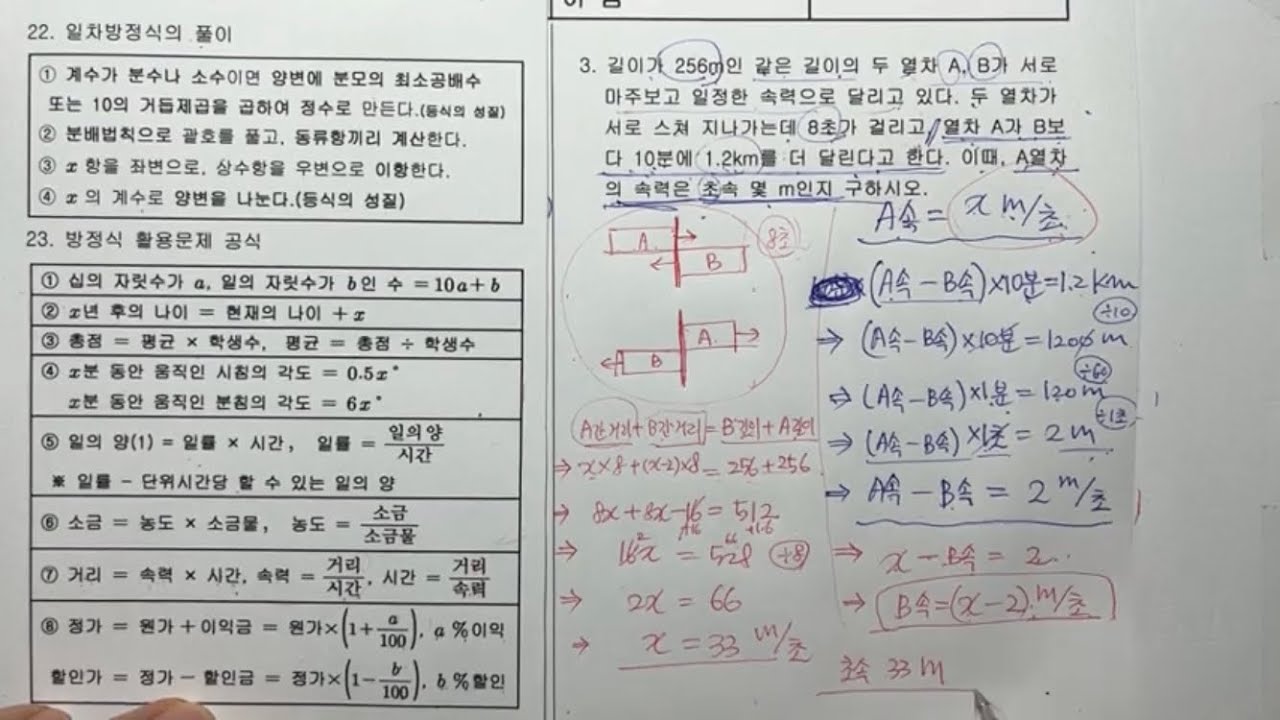 22. 일차방정식의 풀이
① 계수가 분수나 소수이면 양변에 분모의 최소공배수
또는 10의 거듭제곱을 곱하여 정수로 만든다.(등식의 성질)
② 분배법칙으로 괄호를 풀고, 동류항끼리 계산한다.
③ x 항을 좌변으로, 상수항을 우변으로 이항한다.
④ x 의 계수로 양변을 나눈다.(등식의 성질)
23. 방정식 활용문제 공식
① 십의 자릿수가 a, 일의 자릿수가 b인 수 = 10a+b
② x년 후의 나이 = 현재의 나이 + x
③ 총점 = 평균 × 학생수, 평균 = 총점 ÷ 학생수
④ x분 동안 움직인 시침의 각도 = 0.5x°
x분 동안 움직인 분침의 각도 = 6x°
⑤ 일의 양(1) = 일률 × 시간, 일률 = 일의양/시간
※ 일률 - 단위시간당 할 수 있는 일의 양
⑥ 소금 = 농도 × 소금물, 농도 = 소금/소금물
⑦ 거리 = 속력 × 시간, 속력 = 거리/시간, 시간 = 거리/속력
⑧ 정가 = 원가 + 이익금 = 원가×(1+a/100), a %이익
할인가 = 정가 - 할인금 = 정가×(1-b/100), b %할인
3. 길이가 256m인 같은 길이의 두 열차 A, B가 서로
마주보고 일정한 속력으로 달리고 있다. 두 열차가
서로 스쳐 지나가는데 8초가 걸리고, 열차 A가 B보
다 10분에 1.2km를 더 달린다고 한다. 이때, A열차
의 속력은 초속 몇 m인지 구하시오.
A
B
8초
A
B
A간거리+B간거리=B길이+A길이
⇒ x×8+(x-2)×8=256+256
⇒ 8x+8x-16=512
+16 +16
⇒ 16x = 528 ÷8
⇒ 2x = 66
⇒ x = 33 m/초
A속 = x m/초
(A속-B속)×10분=1.2km
⇒ (A속-B속)×10분=1200m ÷10
⇒ (A속-B속)×1분=120m ÷60
⇒ (A속-B속)×1초=2m ÷1초
⇒ A속-B속=2m/초
⇒ x-B속=2
⇒ B속=(x-2)m/초
초속 33m